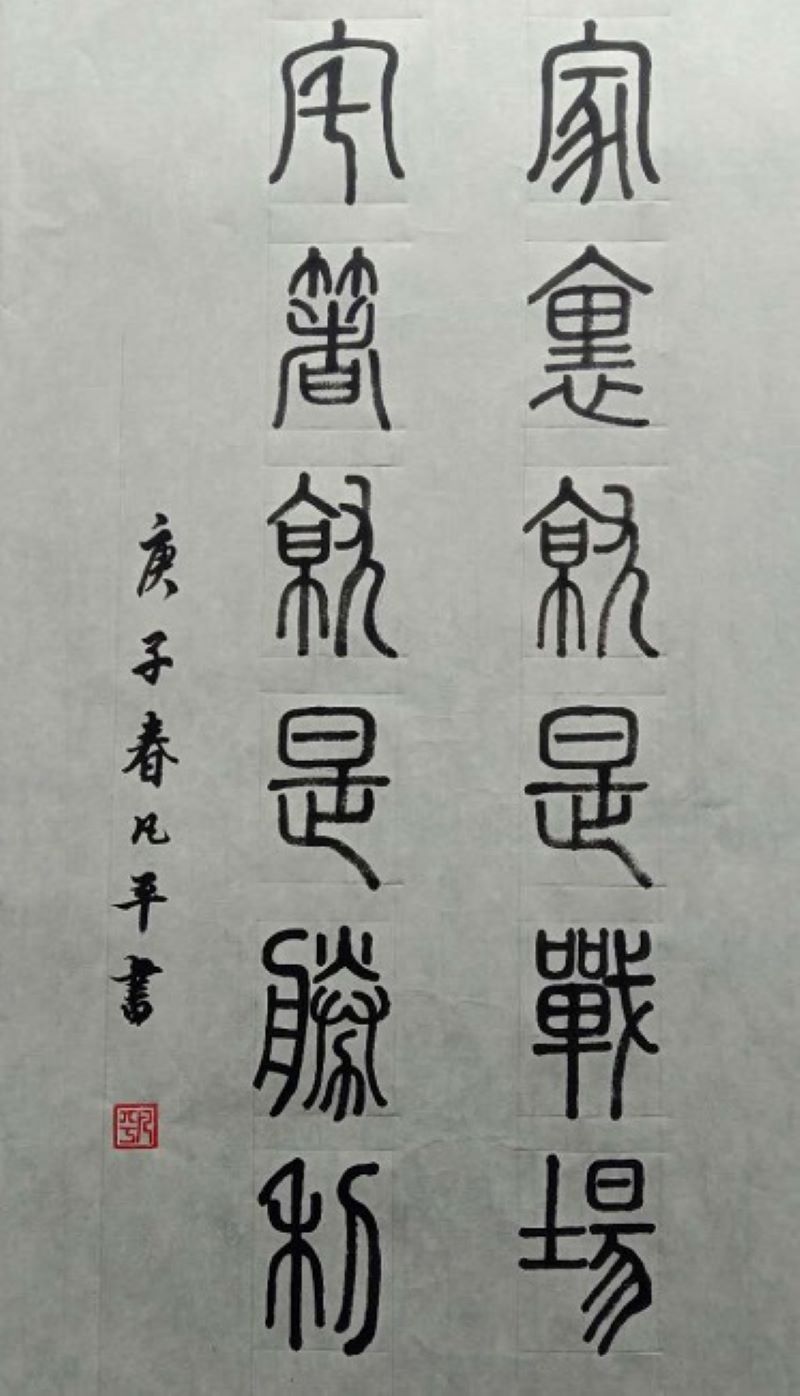 家裏就是戰場
宅箸就是勝利
庚子春凡平書